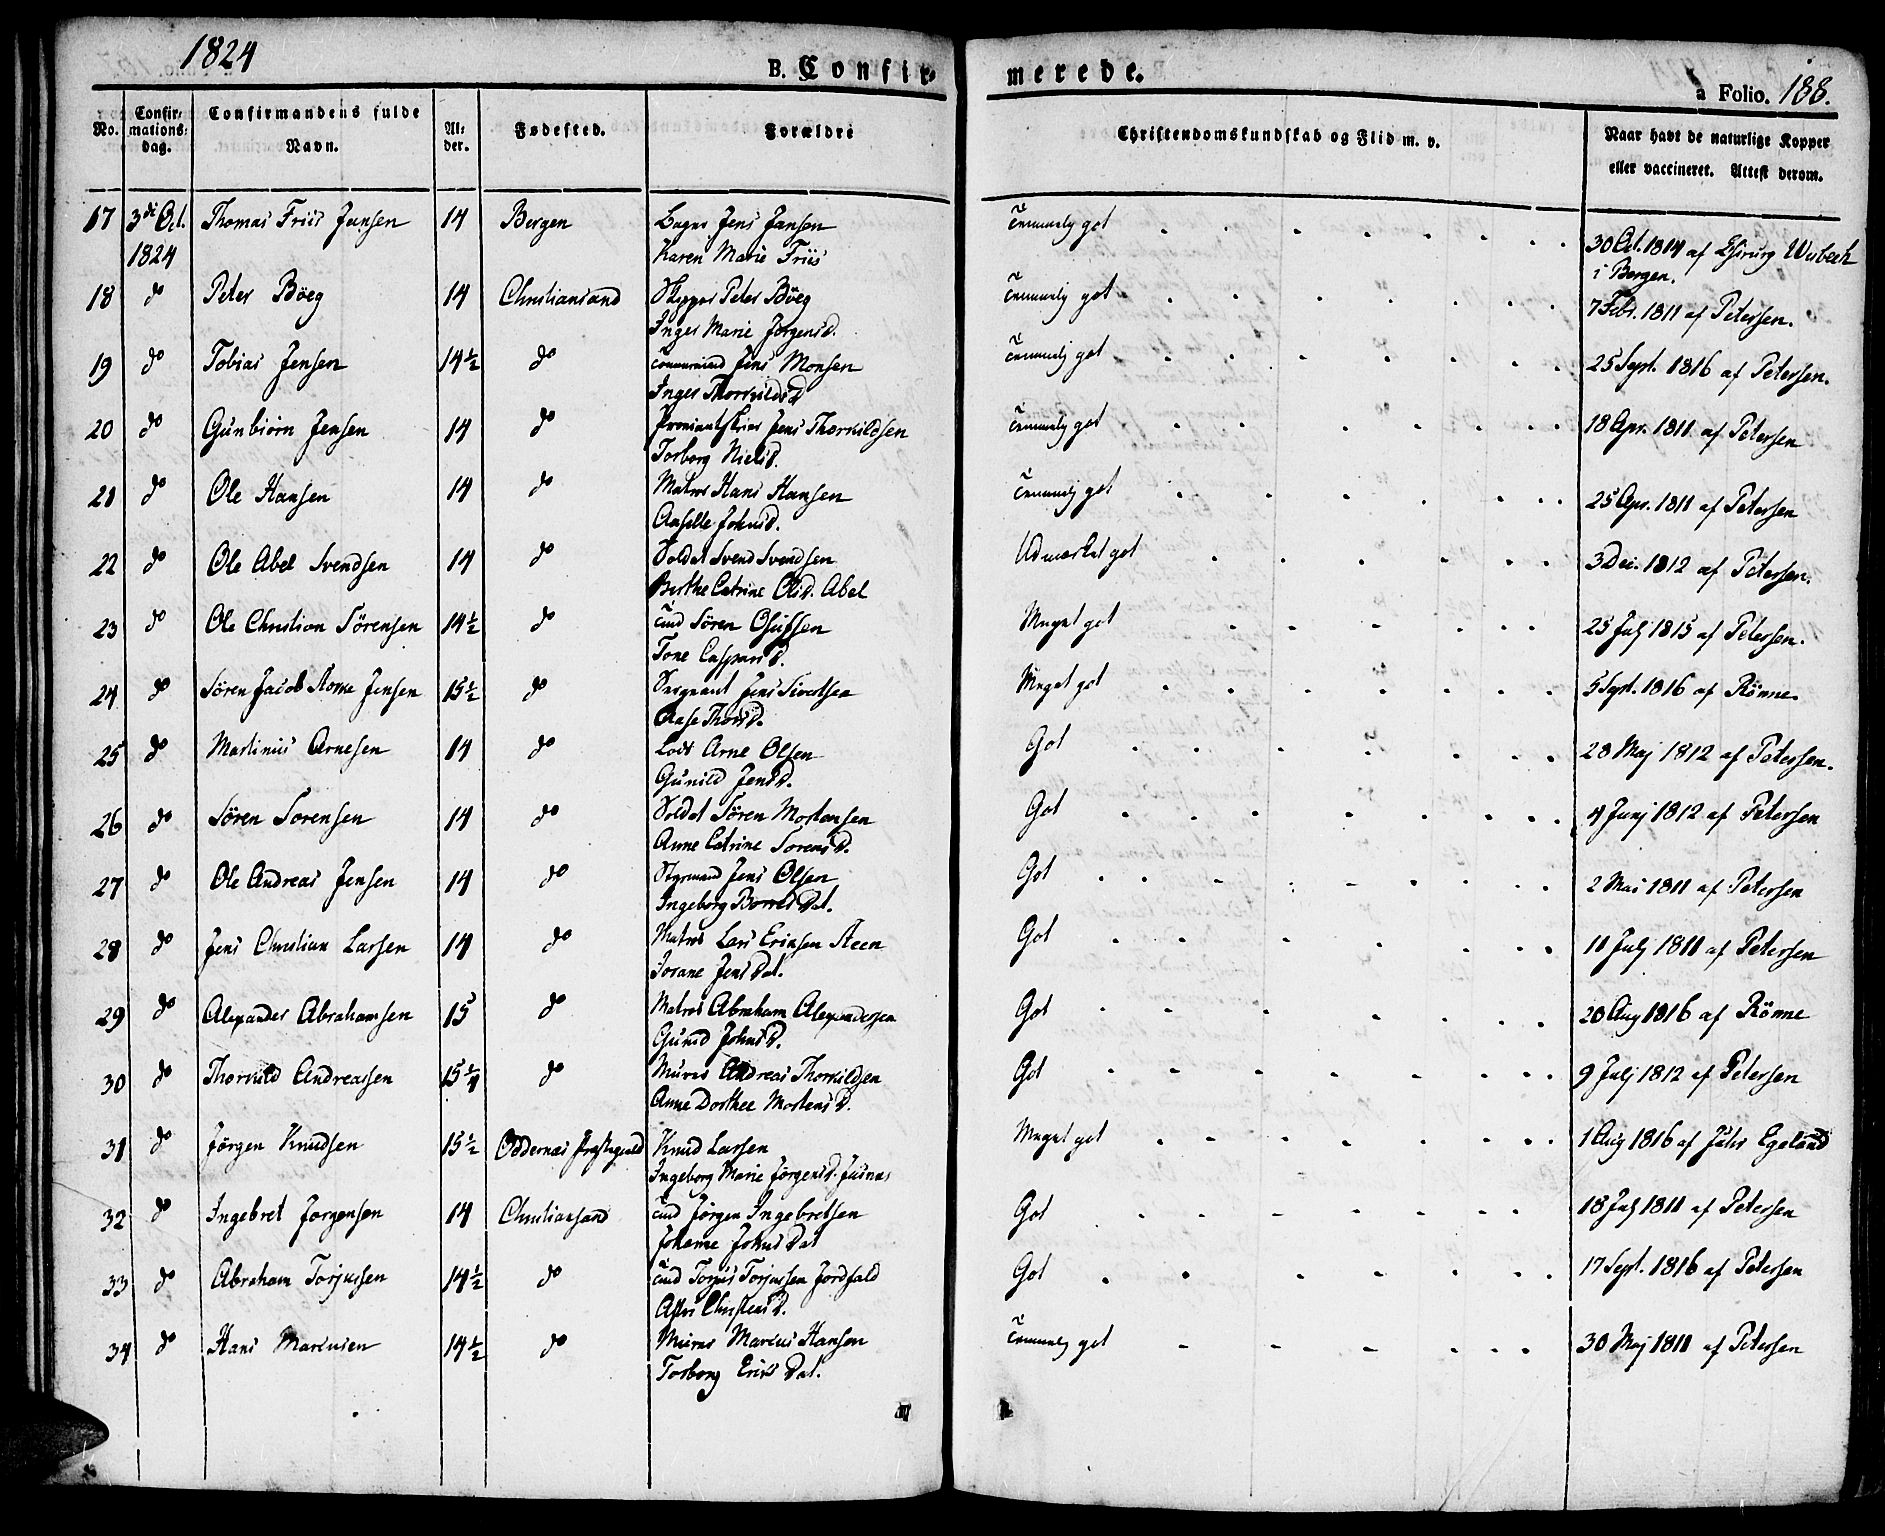 1824
B. Confir-
merede.
a Folio. 188.
No.
Confir-
mations-
dag.
Confirmandens fulde
Navn.
Al-
der.
Fødested.
Forældre
Christendomskundskab og Flid m. v.
Naar havt de naturlige Kopper
eller vaccineret. Attest derom.
17 3di Oct. Thomas Friis Jensen 14 Bergen Jens Jansen Temmelig got 30 Oct. 1814 af Chirurg
1824 Karen Marie Friis i Bergen.
18 do Peter Böeg 14 Christiansand Skipper Peter Böeg Temmelig got 7 Febr. 1811 af Petersen.
Inger Marie Jörgensd.
19 do Tobias Jensen 14½ do Jens Monsen Temmelig got 25 Sept. 1816 af Petersen.
Inger Thorkildsd
20 do Gunbiörn Jensen 14 do Jens Thorkildsen Temmelig got 18 Apr. 1811 af Petersen
Torborg Nielsd.
21 do Ole Hansen 14 do Matros Hans Hansen Temmelig got 25 Apr. 1811 af Petersen
Johnsd.
22 do Ole Abel Svendsen 14 do Soldat Svend Svendsen Udmærket got 3 Dec. 1812 af Petersen.
Berthe Catrine Olsd. Abel
23 do Ole Christian Sörensen 14½ do Sören Meget got 25 Julj 1815 af Petersen.
Tone Caspersd.
24 do Sören Jacob Jensen 15½ do Sergeant Jens Sivertsen Meget got 5 Sept. 1816 af Rönne.
Aase Thorsd.
25 do Martinius Arnesen 14 do Lods Arne Olsen Got 28 Maj 1812 af Petersen.
Gunild Jensd.
26 do Sören Sörensen 14 do Soldat Sören Mortensen Got 4 Junj 1812 af Petersen
Anne Catrine Sörensd.
27 do Ole Andreas Jensen 14 do Styrmand Jens Olsen Got 2 Mai 1811 af Petersen
Ingeborg Dat.
28 do Jens Christian Larsen 14 do Matros Lars Ericksen Steen Got 11 Julj 1811 af Petersen
Jorane Jens Dat.
29 do Alexander Abrahamsen 15 do Matros Abraham Alexandersen Got 20 Aug 1816 af Rönne
Gunild Johnsd.
30 do Thorkild Andreassen 15¼ do Murer Andreas Thorkildsen Got 9 Julj 1812 af Petersen
Anne Dorthee Mortensd.
31 do Jörgen Knudsen 15½ Oddernæs Præstegield Knud Larsen Meget got 1 Aug 1816 af Egeland
Ingeborg Marie Jörgensd.
32 do Ingebret Jörgensen 14 Christiansand Jörgen Ingebretsen Got 18 Julj 1811 af Petersen
Johanne Johns Dat
33 do Abraham Torjussen 14½ do Torjus Torjussen Jordfald Got 17 Sept. 1816 af Petersen
Christensd.
34 do Hans Marcusen 14½ do Murer Marcus Hansen Temmelig got 30 Maj 1811 af Petersen
Torborg Eriks Dat.